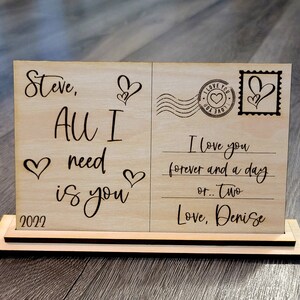 Steve,
All I
need
is you
2022
I LOVE YOU
I love you
forever and a day
or.. two
Love, Denise